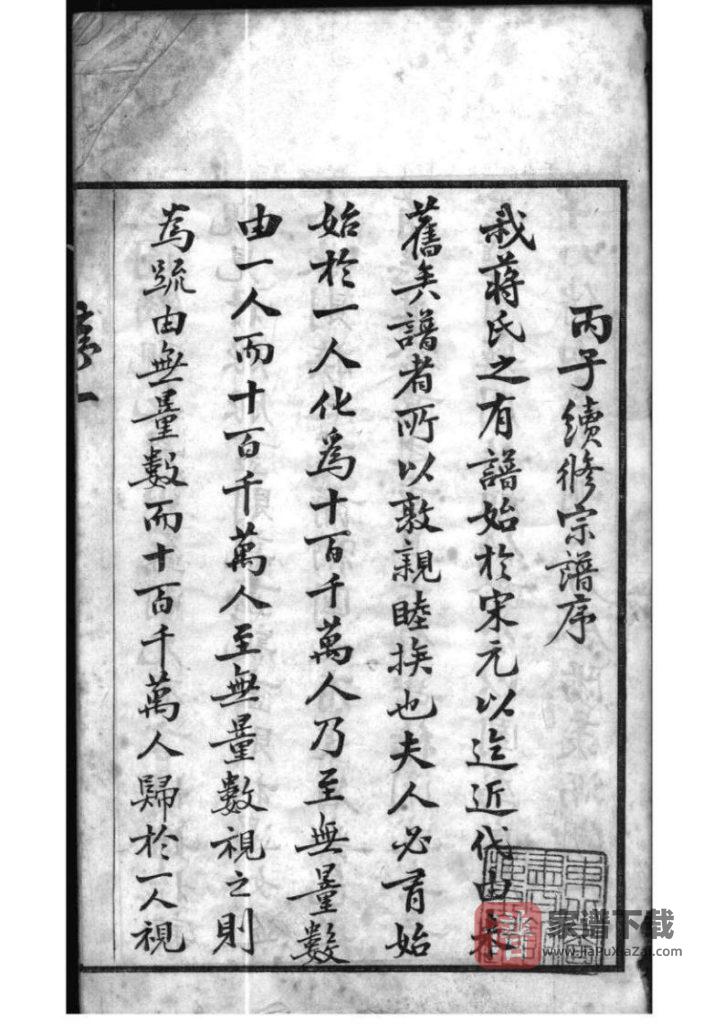 丙子續修宗譜序
我蔣氏之有譜始於宋元以迄近代由來
舊矣譜者所以敦親睦族也夫人必有始
始於一人化為十百千萬人乃至無量數
由一人而十百千萬人至無量數視之則
為疏由無量數而十百千萬人歸於一人視
序一
家谱下载
www.JiaPuXiaZai.com
譜